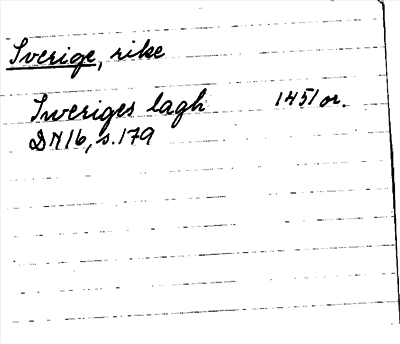 Sverige, rike
Sweriges lagh 1451 or.
DN16, s. 179